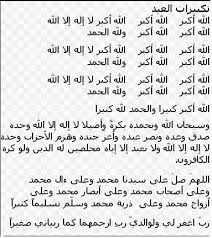 تكبيرات العيد
الله أكبر الله أكبر الله أكبر لا إله إلا الله
الله أكبر الله أكبر ولله الحمد
الله أكبر الله أكبر الله أكبر لا إله إلا الله
الله أكبر الله أكبر ولله الحمد
الله أكبر الله أكبر الله أكبر لا إله إلا الله
الله أكبر الله أكبر ولله الحمد
الله أكبر كبيرا والحمد لله كثيرا
وسبحان الله وبحمده بكرة وأصيلا لا إله إلا الله وحده
صدق وعده ونصر عبده وأعز جنده وهزم الأحزاب وحده
لا إله إلا الله ولا نعبد إلا إياه مخلصين له الدين ولو كره
الكافرون.
اللهم صل على سيدنا محمد وعلى ءال محمد
وعلى أصحاب محمد وعلى أنصار محمد وعلى
أزواج محمد وعلى ذرية محمد وسلّم تسليماً كثيراً
ربّ اغفر لي ولوالديّ ربّ ارحمهما كما ربياني صغيراً